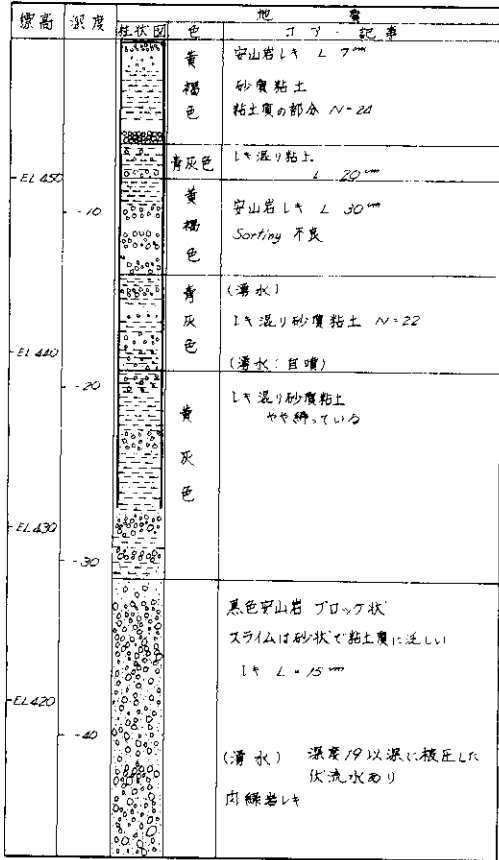 標高 深度 地質
柱状図 色 コア・記事
黄褐色 安山岩レキ L 7cm
砂質粘土
粘土質の部分 N=24
青灰色 レキ混り粘土
L 20cm
EL 450
-10
黄褐色 安山岩レキ L 30cm
Sorting 不良
青灰色 (湧水)
レキ混り砂質粘土 N=22
(湧水:自噴)
EL 440
-20
黄灰色 レキ混り砂質粘土
やや締っている
EL 430
-30
黒色安山岩 ブロック状
スライムは砂状で粘土質に乏しい
レキ L=15cm
EL 420
-40
(湧水) 深度19以深に被圧した
伏流水あり
緑岩レキ